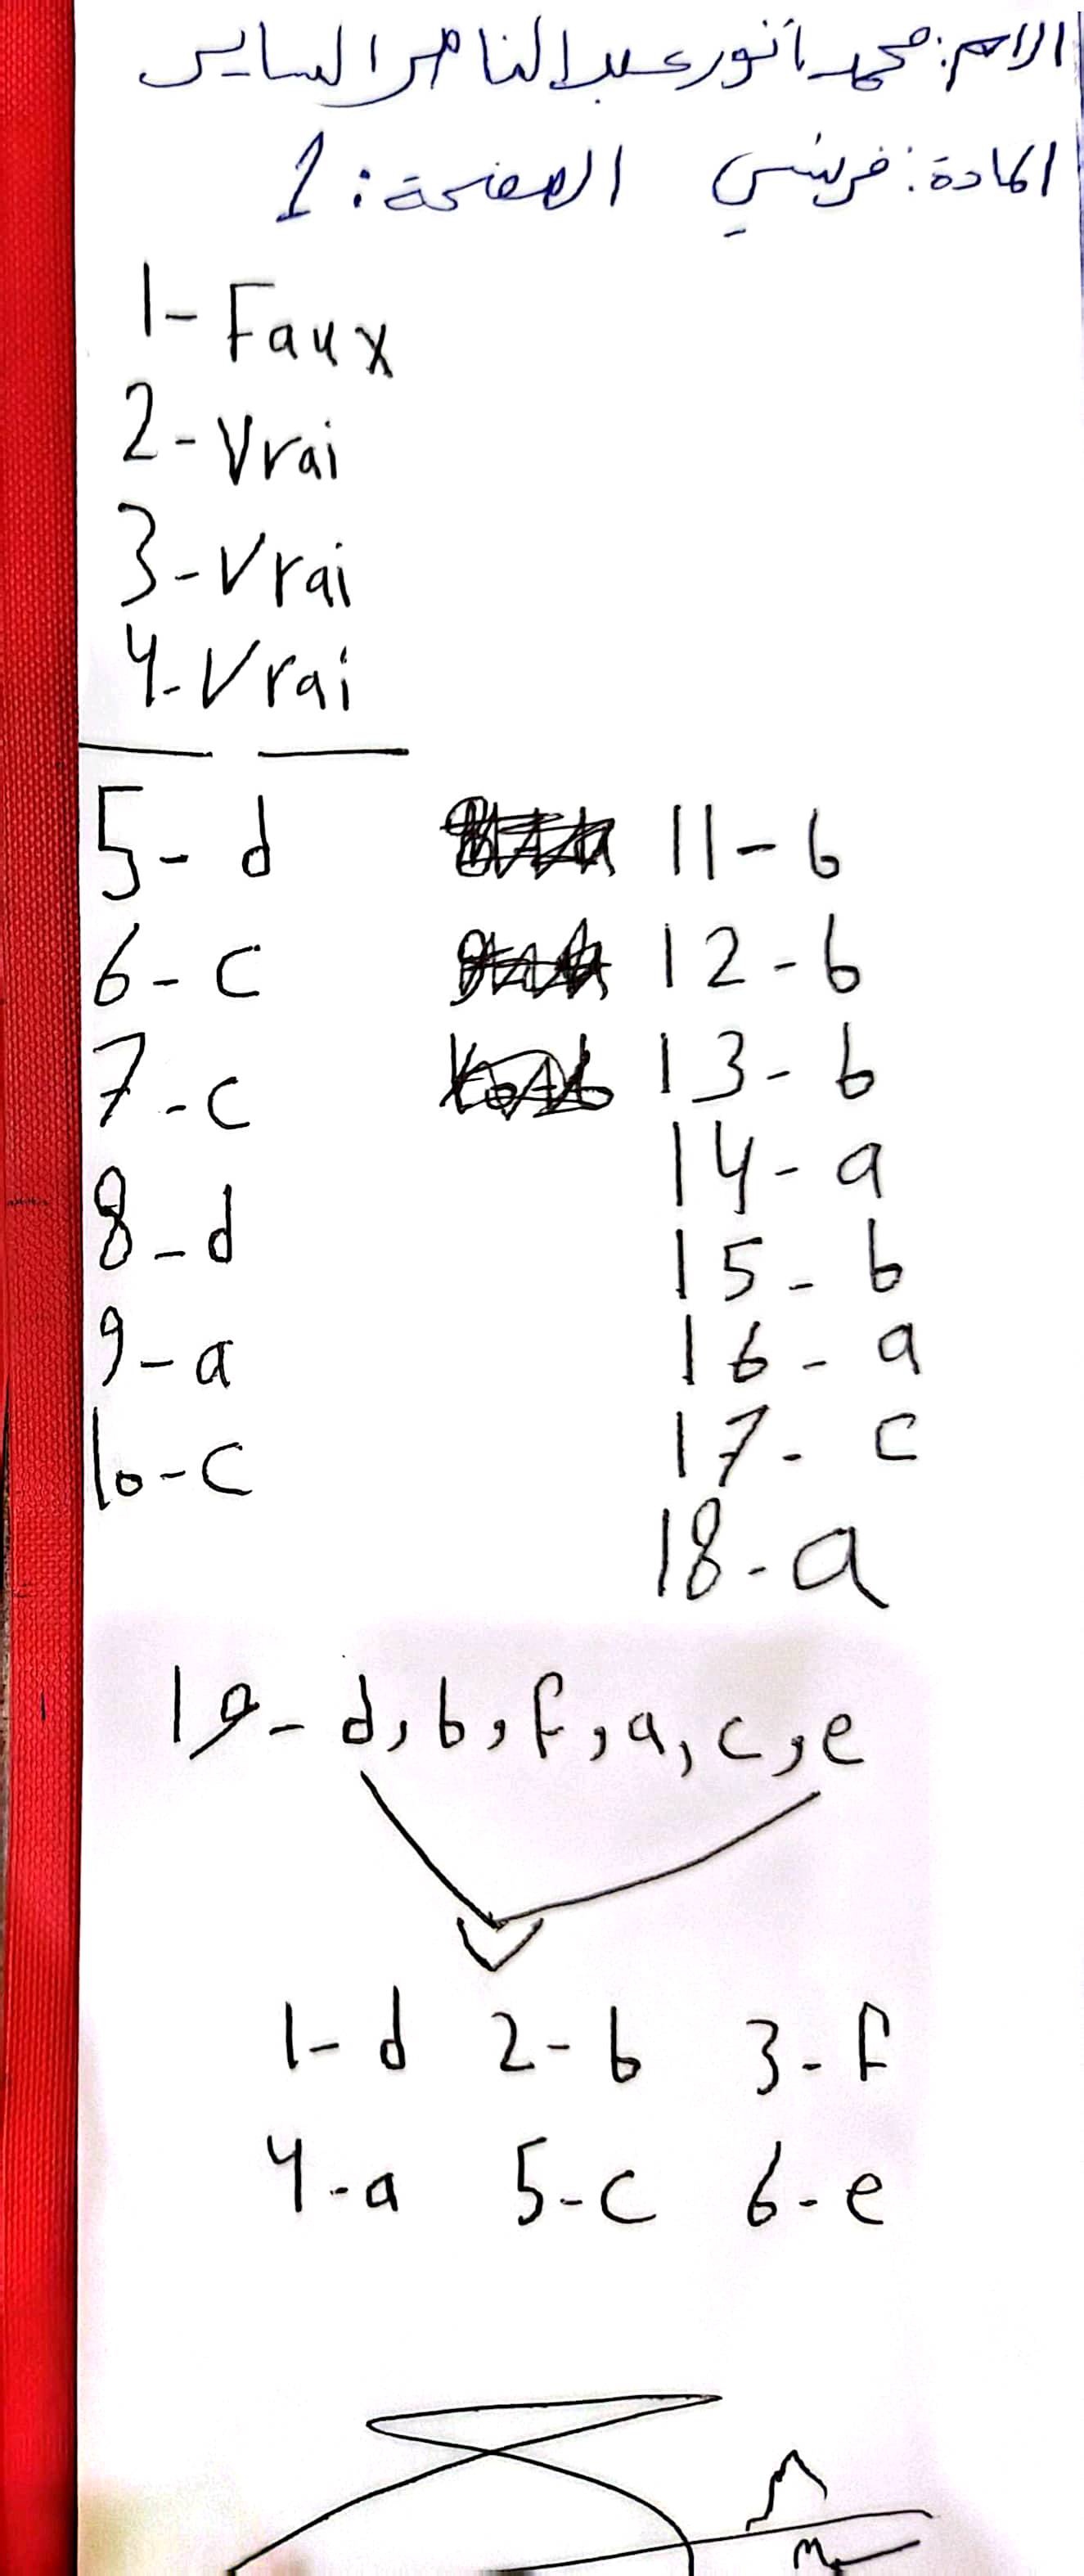 الاسم: محمد أنور عبد الناصر الساير
المادة: فرنسي الصفحة: 1
1- Faux
2- Vrai
3- Vrai
4- Vrai
5- d
6- c
7- c
8- d
9- a
10- c
11- b
12- b
13- b
14- a
15- b
16- a
17- c
18- a
19- d, b, f, a, c, e
1- d 2- b 3- f
4- a 5- c 6- e